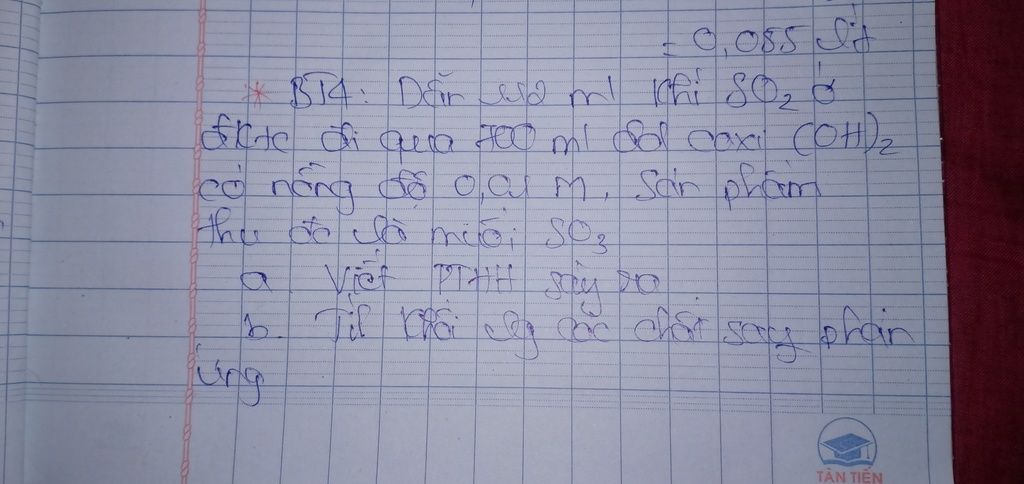 = 0,055 lít
* BT4: Dẫn 112 ml khí SO₂ ở
đktc đi qua 700 ml dd caxi (OH)₂
có nồng độ 0,01 m, sản phẩm
thu đc là muối SO₃
a. Viết PTHH sảy ra
b. Tíh khối lg các chất say phản
ứng
TÂN TIẾN